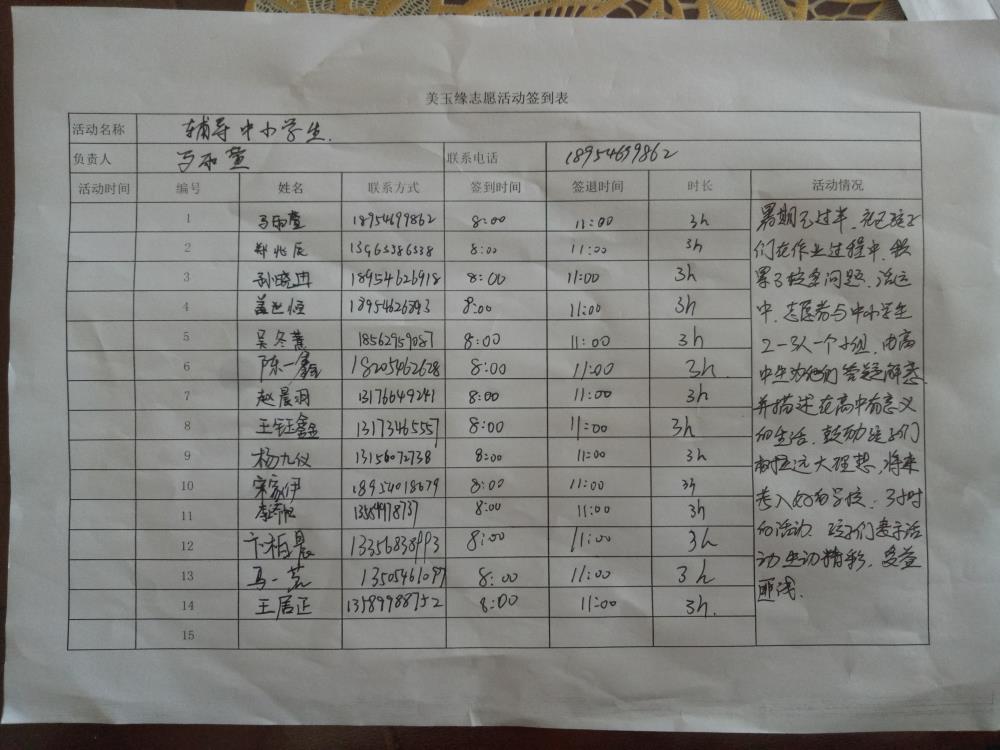 美玉缘志愿活动签到表
活动名称 辅导中小学生.
负责人 马雨萱 联系电话 18954699862
活动时间 编号 姓名 联系方式 签到时间 签退时间 时长 活动情况
1 马雨萱 18954699862 8:00 11:00 3h
2 郑兆辰 8:00 11:00 3h
3 孙晓冉 18954626918 8:00 11:00 3h
4 盖世恒 8:00 11:00 3h
5 吴冬蕙 18562959087 8:00 11:00 3h
6 陈一鑫 18205462628 8:00 11:00 3h.
7 赵晨羽 13176649241 8:00 11:00 3h
8 王钰鑫 13173465557 8:00 11:00 3h
9 杨九仪 13156072738 8:00 11:00 3h
10 宋家伊 18954018679 8:00 11:00 3h
11 8:00 11:00 3h
12 卞柏晨 8:00 11:00 3h
13 马一 8:00 11:00 3h
14 王居正 13589988752 8:00 11:00 3h.
15
暑期已过半,
们在作业过程中,积
累了较多问题.活动
中,志愿者与中小学生
2-3人一个小组,由高
中生为他们答疑解惑.
并描述在高中有意义
的生活.鼓励孩子们
树立远大理想,将来
考入好的学校.3小时
的活动.孩子们表示活
动生动精彩,受益
匪浅.